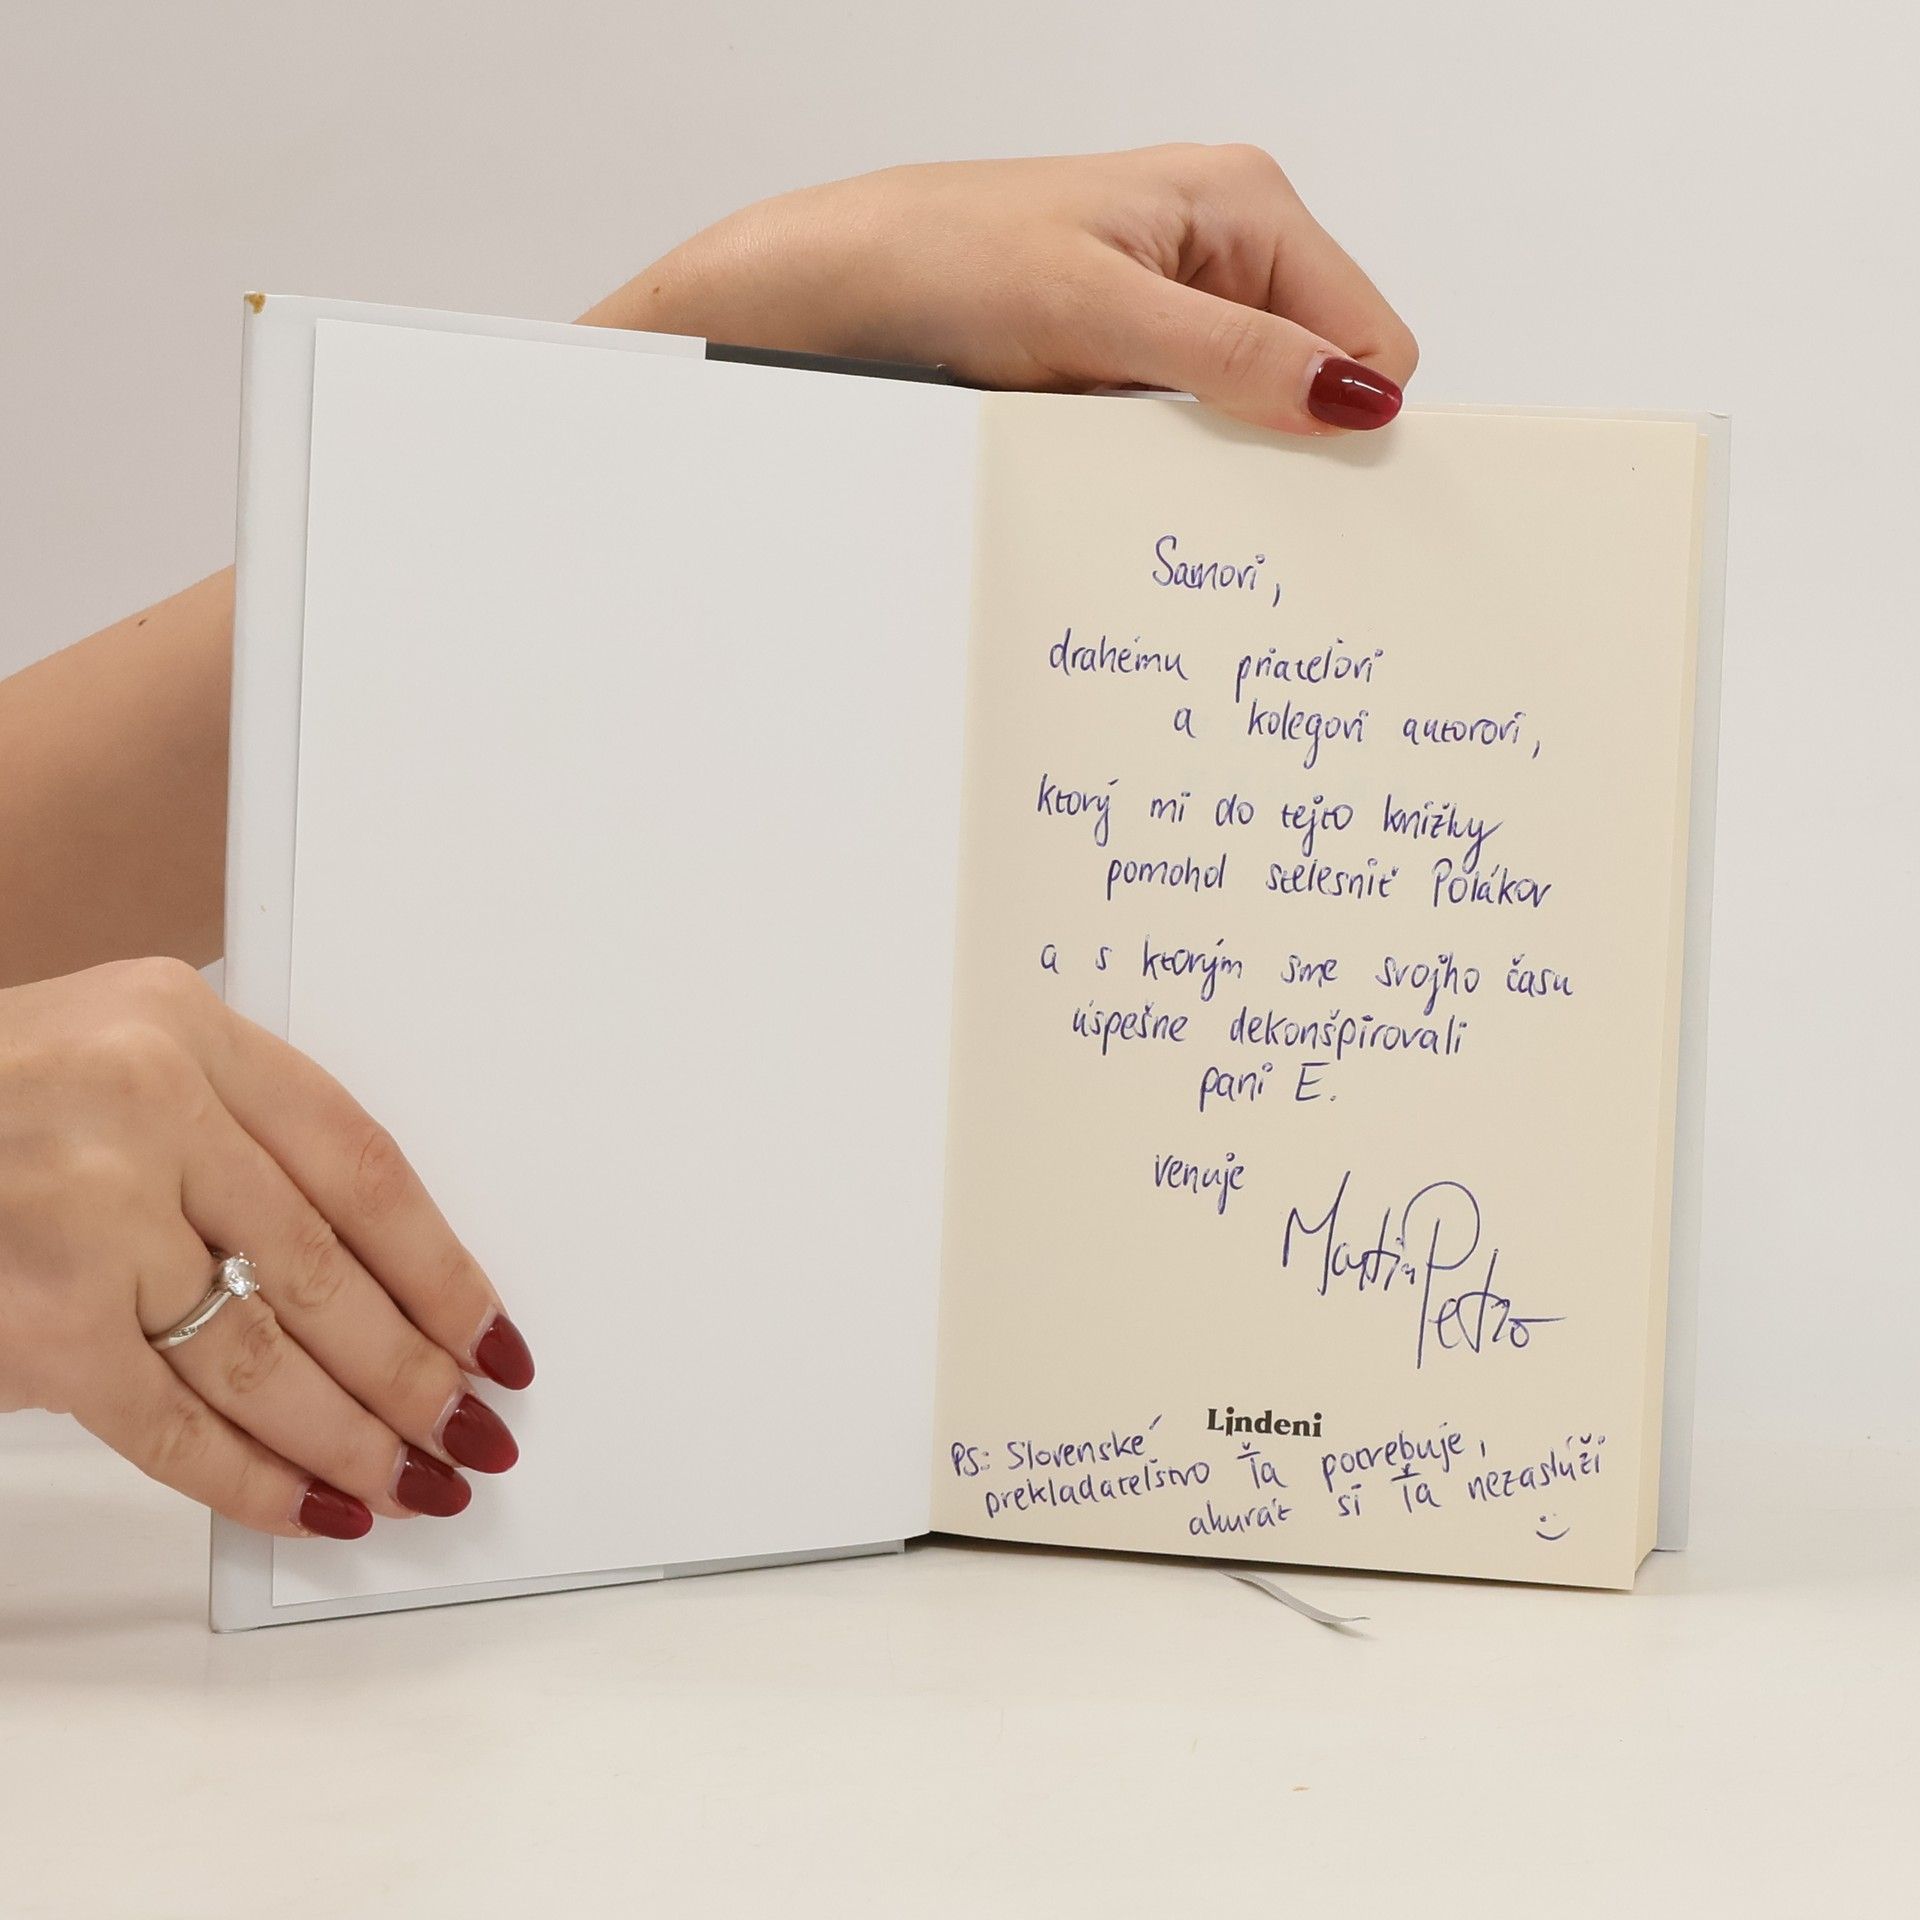 Samovi,
drahému priateľovi
a kolegovi autorovi,
ktorý mi do tejto knižky
pomohol stelesniť Poliakov
a s ktorým sme svojho času
úspešne dekonšpirovali
pani E.
venuje
Martin Petro
Lindeni
PS: Slovenské
prekladateľstvo Ťa potrebuje,
akurát si Ťa nezaslúži